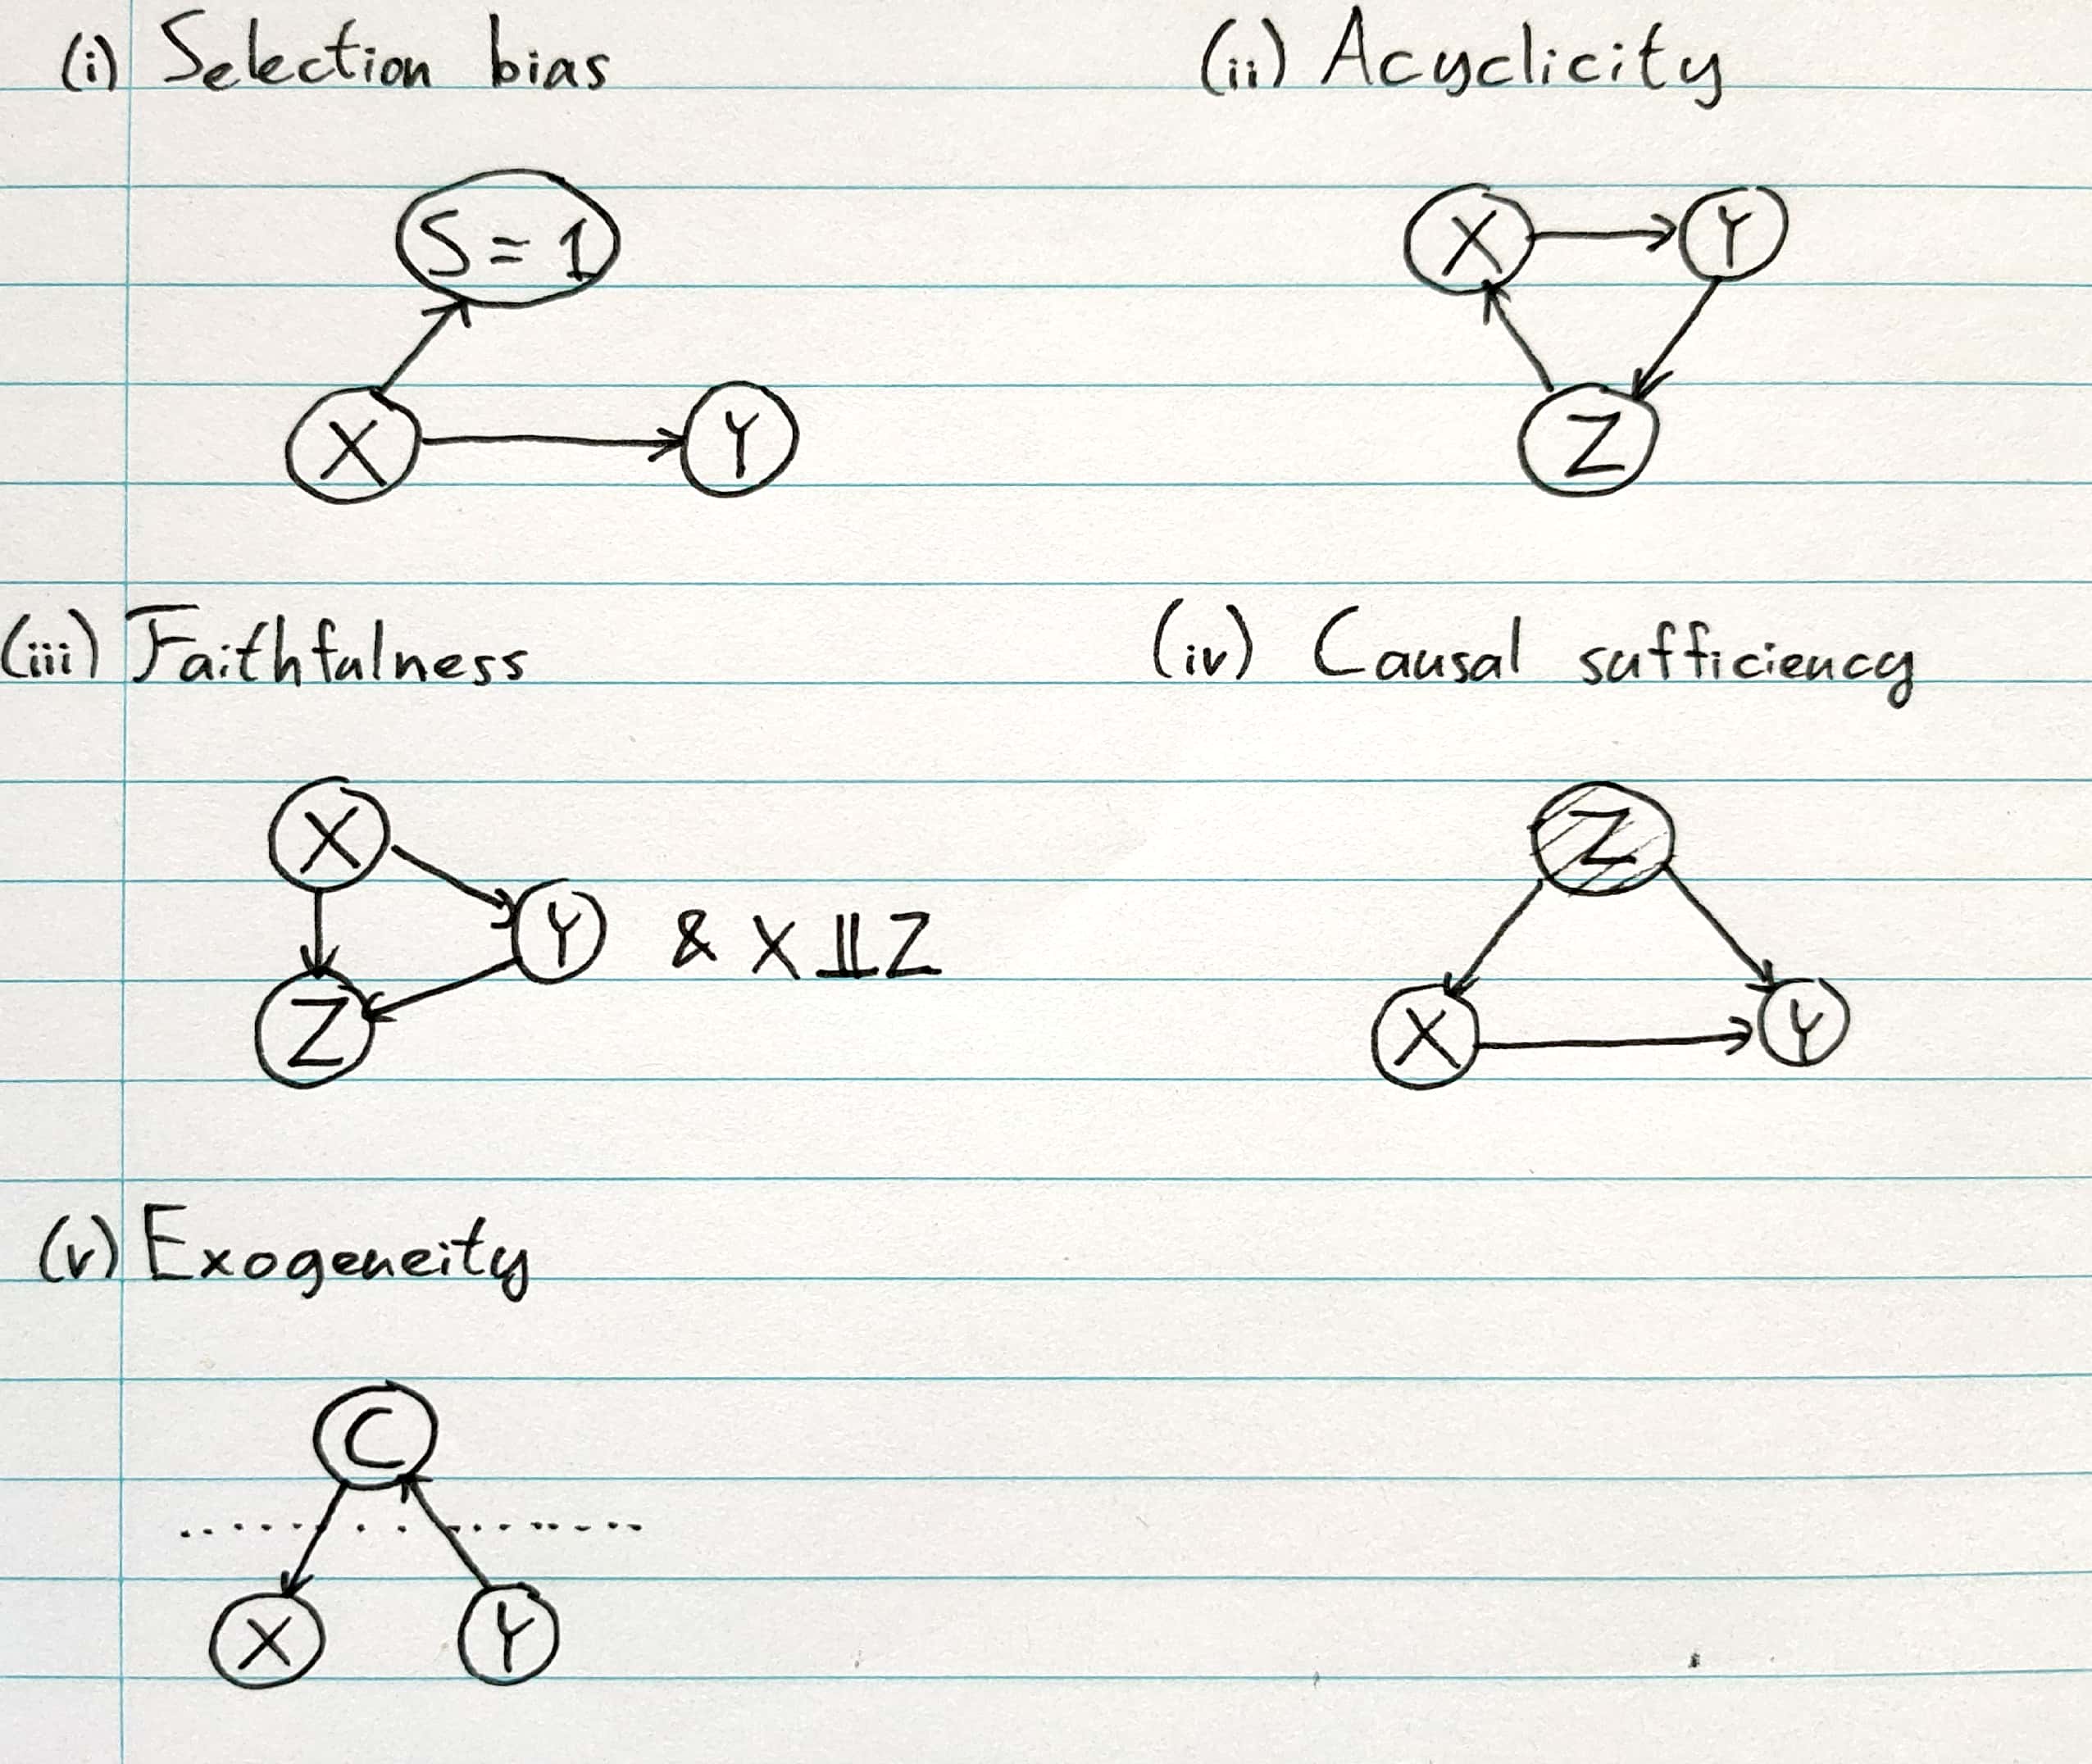 (i) Selection bias
S = 1
X Y
(ii) Acyclicity
X Y
Z
(iii) Faithfulness
X
Y & X ⫫ Z
Z
(iv) Causal sufficiency
Z
X Y
(v) Exogeneity
C
X Y